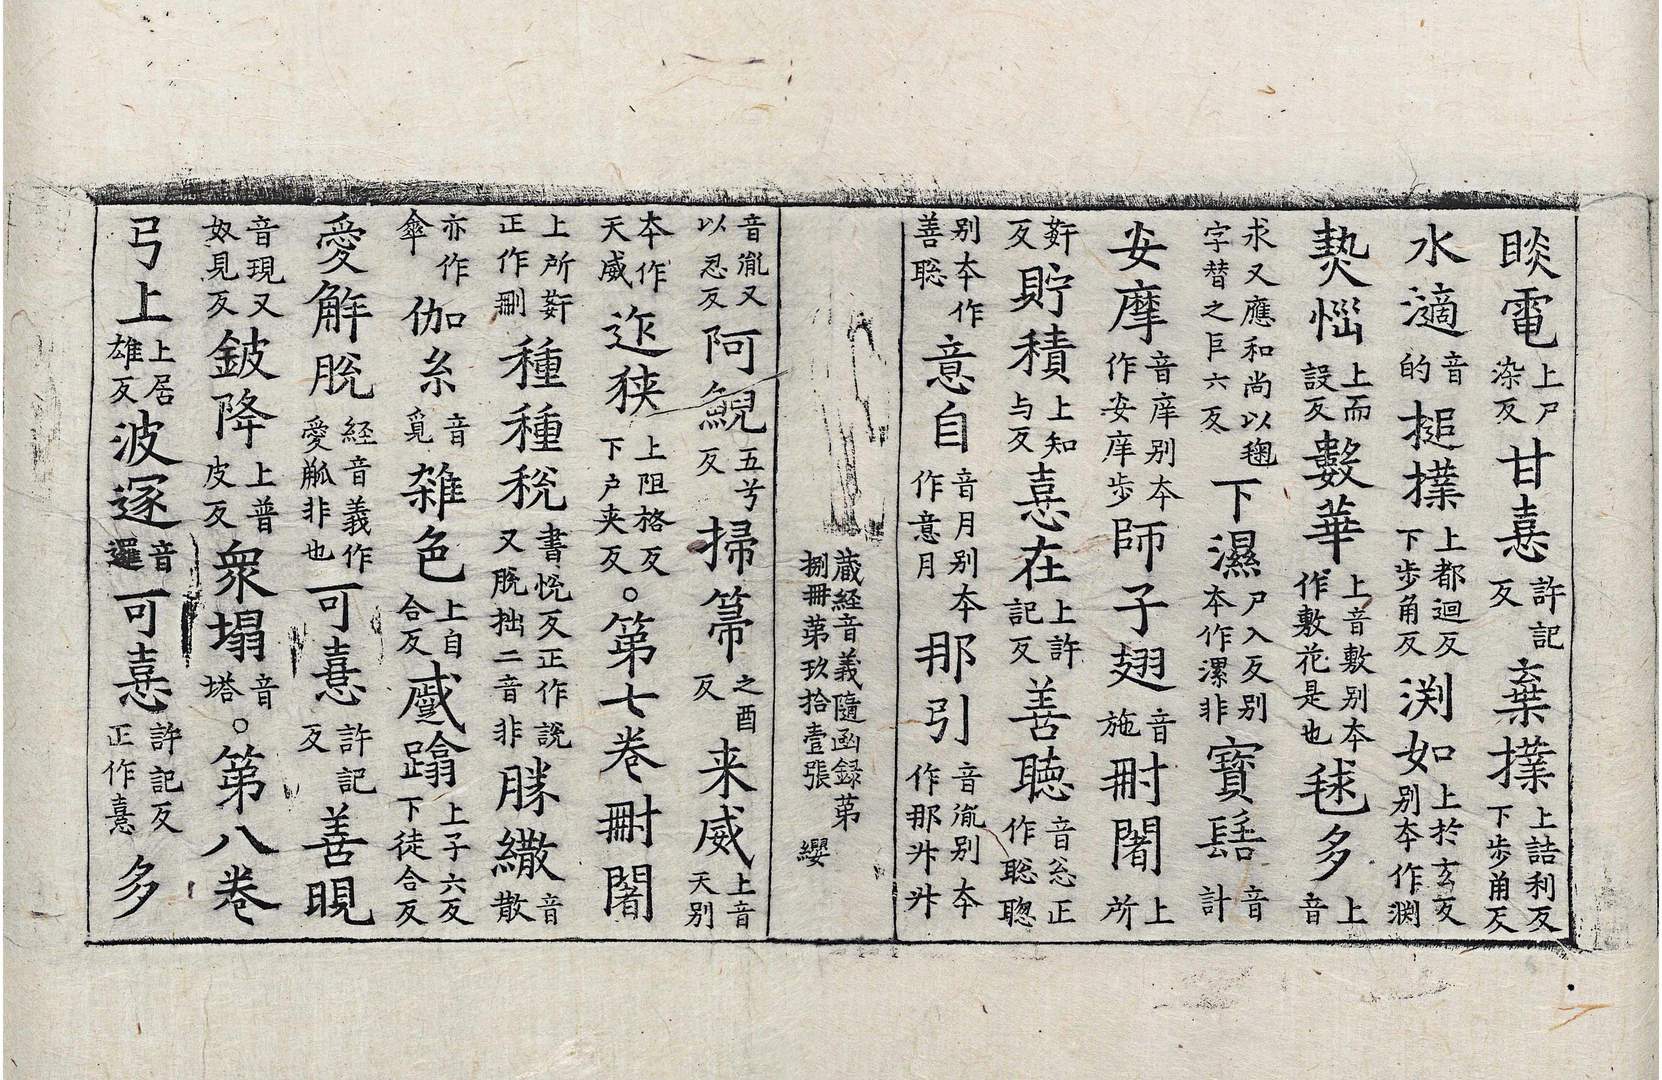 睒電上尸染反甘憙許記反棄撲上詰利反下步角反
水滴音的搥撲上都迴反下步角反渕如上於玄反別本作渊
𤍠惱上而設反數華上音敷別本作敷花是也毬多上音
求又應和尚以毱字替之巨六反下濕尸入反別本作漯非寶髻音計
安摩音庠別本作安庠步師子翅音施㓨闍上所
姧反貯積上知与反憙在上許記反善聴音忩正作聡聦
別本作善聡意自音月別本作意月那引音胤別本作那廾廾
藏経音義隨函録第捌冊第玖拾壹張 纓
音胤又以忍反阿鯢五兮反掃箒之酉反来威上音天別
本作天威迮狹上阻格反下户夹反。第七卷㓨闍
上所姧反正作刪種種税書恱反正作説又脫拙二音非勝繖音散
亦作傘伽糸音覓雜色上自合反蹙蹹上子六反下徒合反
愛解脫経音義作愛觚非也可憙許記反善晛
音現又奴見反鈹降上普皮反衆塌音塔。第八卷
弓上上居雄反波邏音邏可憙許記反正作憙多